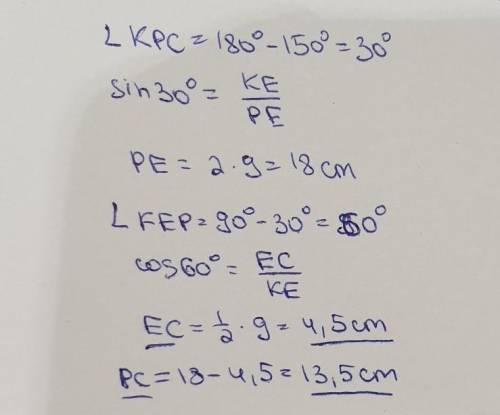 ∠ KPC = 180° - 150° = 30°
sin30° = KE/PE
PE = 2 · 9 = 18 cm
∠ KEP = 90° - 30° = 60°
cos60° = EC/KE
EC = 1/2 · 9 = 4,5 cm
PC = 18 - 4,5 = 13,5 cm